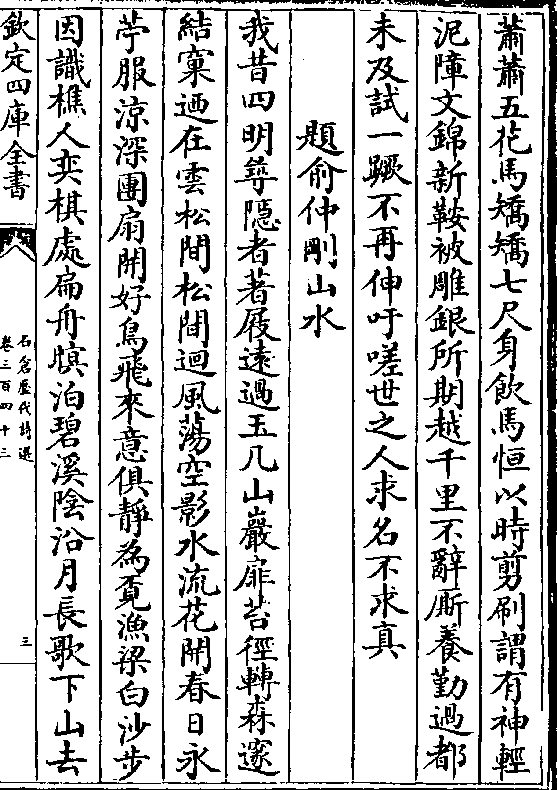 蕭蕭五花馬矯矯七尺身飲馬恒以時剪刷謂有神輕
泥障文錦新鞍被雕銀所期越千里不辭厮養勤過都
未及試一蹶不再伸吁嗟世之人求名不求真
題俞仲剛山水
我昔四明尋隱者著屐遠過玉几山巖扉苔徑轉森邃
結窠迺在雲松間松間迴風蕩空影水流花開春日永
苧服涼深團扇開好鳥飛來意俱靜為覔漁梁白沙步
因識樵人奕棋處扁舟暝泊碧溪陰沿月長歌下山去
欽定四庫全書
石倉歷代詩選
卷三百四十三
三